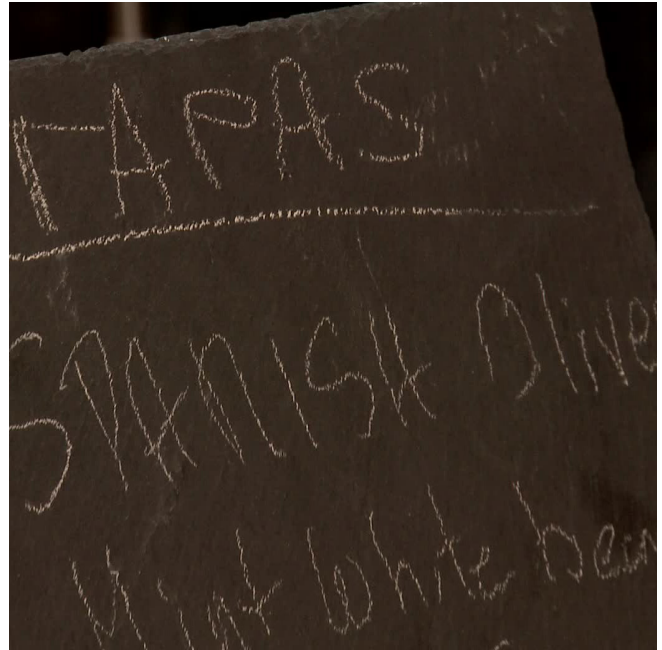 TAPAS
SPANISH Olive
Mint white bean